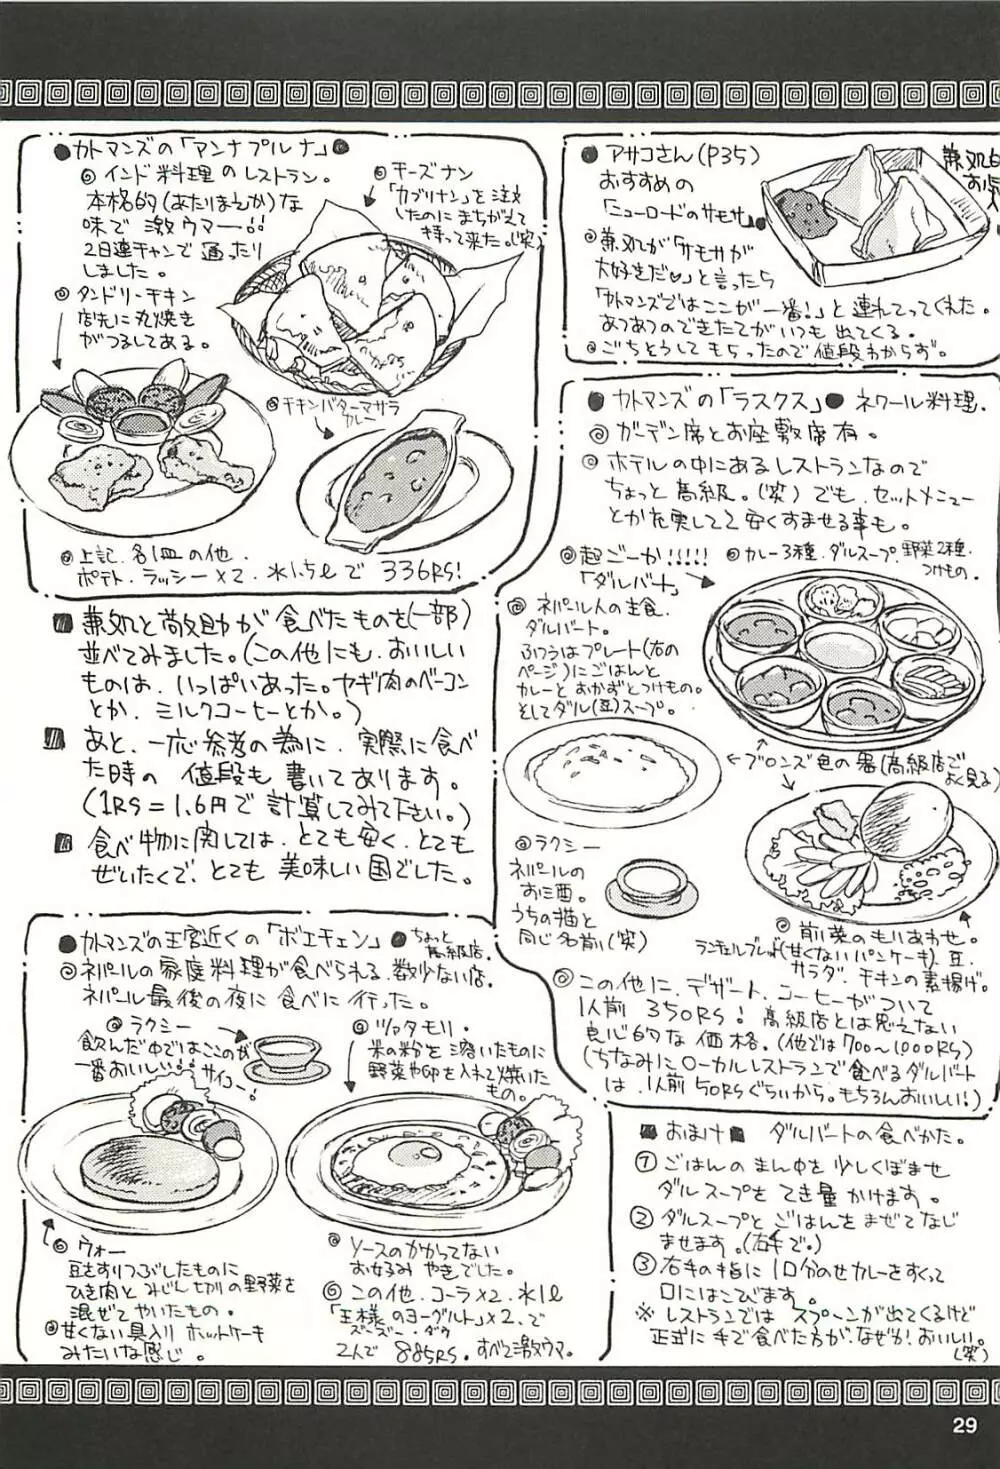 ●カトマンズの「アンナプルナ」●
◎インド料理のレストラン。
本格的(あたりまえか)な
味で激ウマー!!
2日連チャンで通ったり
しました。
◎タンドリーチキン
店先に丸焼きが
つるしてある。
◎チーズナン
「カブリナン」を注文
したのにまちがえて
持って来た。(笑)
◎チキンバターマサラ
カレー
◎上記、各1皿の他、
ポテト、ラッシー×2、水1.5ℓで 336RS!
■兼処と敵助が食べたものを(一部)
並べてみました。(この他にも、おいしい
ものは、いっぱいあった。ヤギ肉のベーコン
とか、ミルクコーヒーとか。)
■あと、一応参考の為に、実際に食べ
た時の値段も書いてあります。
(1RS=1.6円で計算してみて下さい。)
■食べ物に関しては、とても安く、とても
ぜいたくで、とても美味しい国でした。
●カトマンズの王宮近くの「ボエチェン」●ちょっと
高級店。
◎ネパールの家庭料理が食べられる、数少ない店。
ネパール最後の夜に食べに行った。
◎ラクシー
飲んだ中ではここのが
一番おいしい!! サイコー!
◎ツァタモリ・
米の粉を溶いたものに
野菜や卵を入れて焼いた
もの。
◎ウォー
豆をすりつぶしたものに
ひき肉とみじん切りの野菜を
混ぜてやいたもの。
◎甘くない具入りホットケーキ
みたいな感じ。
◎ソースのかかってない
お好みやきでした。
◎この他、コーラ×2、水1ℓ
「王様のヨーグルト」×2、で
ズーズー・ダウ
2人で 885RS。すべて激ウマ。
●アサコさん(P35)
おすすめの
「ニューロードのサモサ」●
◎兼処が「サモサが
大好きだ♡」と言ったら
「カトマンズではここが一番!」と連れてってくれた。
あつあつのできたてがいつも出てくる。
◎ごちそうしてもらったので値段わからず。
兼処も
●カトマンズの「ラスクス」●ネワール料理。
◎ガーデン席とお座敷席有。
◎ホテルの中にあるレストランなので
ちょっと高級。(笑)でも、セットメニュー
とか充実してて安くすませる事も。
◎超ごーか!!!!!
「ダルバート」
◎カレー3種、ダルスープ、野菜2種、
つけもの。
◎ネパール人の主食、
ダルバート。
ふつうはプレート(右の
ページ)にごはんと
カレーとおかずとつけもの。
そしてダル(豆)スープ。
←ブロンズ色の器(高級店で
よく見る)
◎ラクシー
ネパールの
お酒。
うちの猫と
同じ名前(笑)
◎前菜のもりあわせ。
ランチェルブレッド(甘くないパンケーキ)、豆、
サラダ、チキンの素揚げ。
◎この他に、デザート、コーヒーがついて
1人前350RS!高級店とは思えない
良心的な価格。(他では700〜1000RS)
(ちなみにローカルレストランで食べるダルバート
は、1人前50RSぐらいから。もちろんおいしい!)
■おまけ■ ダルバートの食べかた。
①ごはんのまん中を少しくぼませ
ダルスープをてき量かけます。
②ダルスープとごはんをまぜてなじ
ませます。(右手で。)
③右手の指に1口分のせカレーをすくって
口にはこびます。
※レストランではスプーンが出てくるけど
正式に手で食べた方が、なぜか!おいしい。
(笑)
29